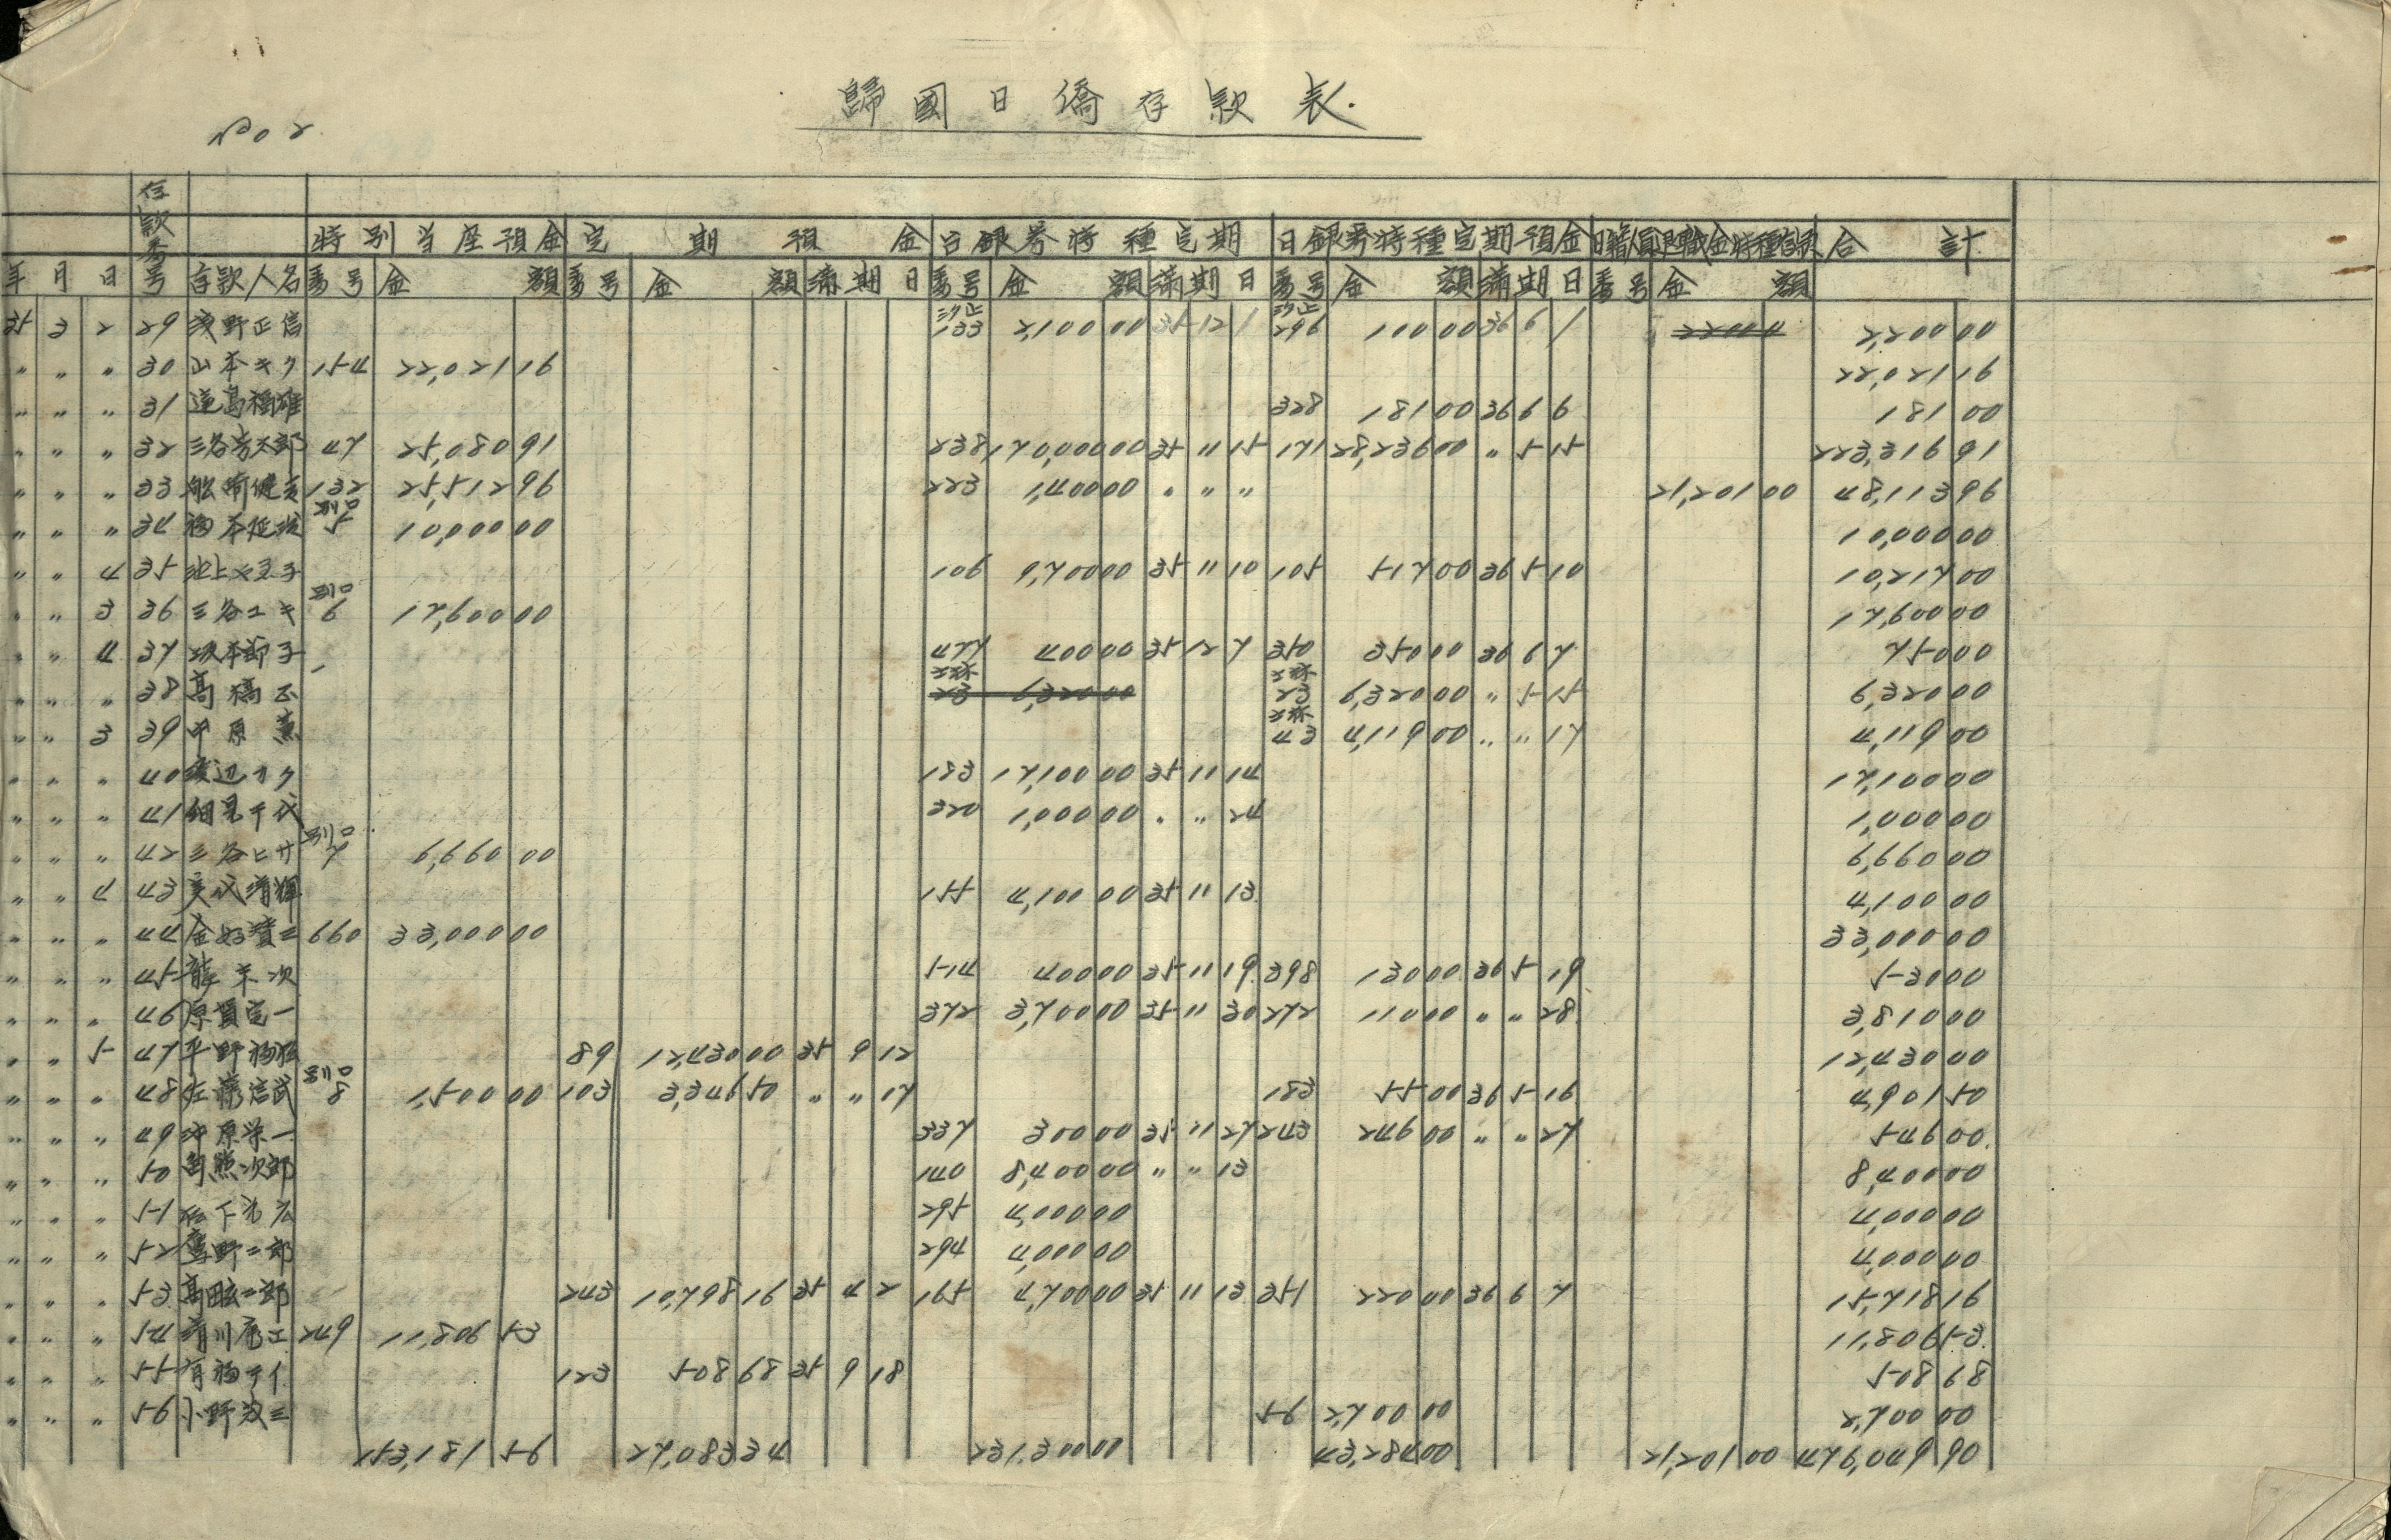 歸國日僑存款表.
No 2.
存款番号 特別当座預金 定期預金 台銀券特種定期 日銀券特種定期預金 合計
年 月 日 存款人名 番号 金額 番号 金額 満期日 番号 金額 満期日 番号 金額 満期日 番号 金額
35 3 2 29 浅野正信 133 2,100 00 35 12 1 296 100 00 36 6 1 220 0 2,200 00
〃 〃 〃 30 山本キク 154 22,021 16 22,021 16
〃 〃 〃 31 328 181 00 36 6 6 181 00
〃 〃 〃 32 三谷芳太郎 47 25,080 91 238 170,000 00 35 11 15 171 28,236 00 〃 5 15 223,316 91
〃 〃 〃 33 132 25,512 96 223 1,400 00 〃 〃 〃 21,201 00 48,113 96
〃 〃 〃 34 別口 5 10,000 00 10,000 00
〃 〃 4 35 106 9,700 00 35 11 10 105 517 00 36 5 10 10,217 00
〃 〃 3 36 三谷ユキ 別口 6 17,600 00 17,600 00
〃 〃 4 37 坂本節子 477 400 00 35 12 7 350 350 00 36 6 7 750 00
〃 〃 〃 38 高橋正 23 6,320 00 23 6,320 00 〃 5 15 6,320 00
〃 〃 3 39 中原薫 43 4,119 00 〃 〃 17 4,119 00
〃 〃 〃 40 渡辺カク 183 17,100 00 35 11 14 17,100 00
〃 〃 〃 41 細見千代 320 1,000 00 〃 〃 24 1,000 00
〃 〃 〃 42 三谷ヒサ 別口 7 6,660 00 6,660 00
〃 〃 4 43 155 4,100 00 35 11 13 4,100 00
〃 〃 〃 44 660 33,000 00 33,000 00
〃 〃 〃 45 514 400 00 35 11 19 398 130 00 36 5 19 530 00
〃 〃 〃 46 原賀定一 372 3,700 00 35 11 30 272 110 00 〃 〃 28 3,810 00
〃 〃 5 47 89 12,430 00 35 9 12 12,430 00
〃 〃 〃 48 佐藤信武 別口 8 1,500 00 103 3,346 50 〃 〃 17 183 55 00 36 5 16 4,901 50
〃 〃 〃 49 337 300 00 35 11 27 243 246 00 〃 〃 27 546 00
〃 〃 〃 50 角熊次郎 140 8,400 00 〃 〃 13 8,400 00
〃 〃 〃 51 295 4,000 00 4,000 00
〃 〃 〃 52 鷹野二郎 294 4,000 00 4,000 00
〃 〃 〃 53 243 10,798 16 35 4 2 165 4,700 00 35 11 13 351 220 00 36 6 7 15,718 16
〃 〃 〃 54 249 11,806 53 11,806 53
〃 〃 〃 55 有福テイ 123 508 68 35 9 18 508 68
〃 〃 〃 56 56 2,700 00 2,700 00
153,181 56 27,083 34 231,300 00 43,284 00 21,201 00 476,049 90